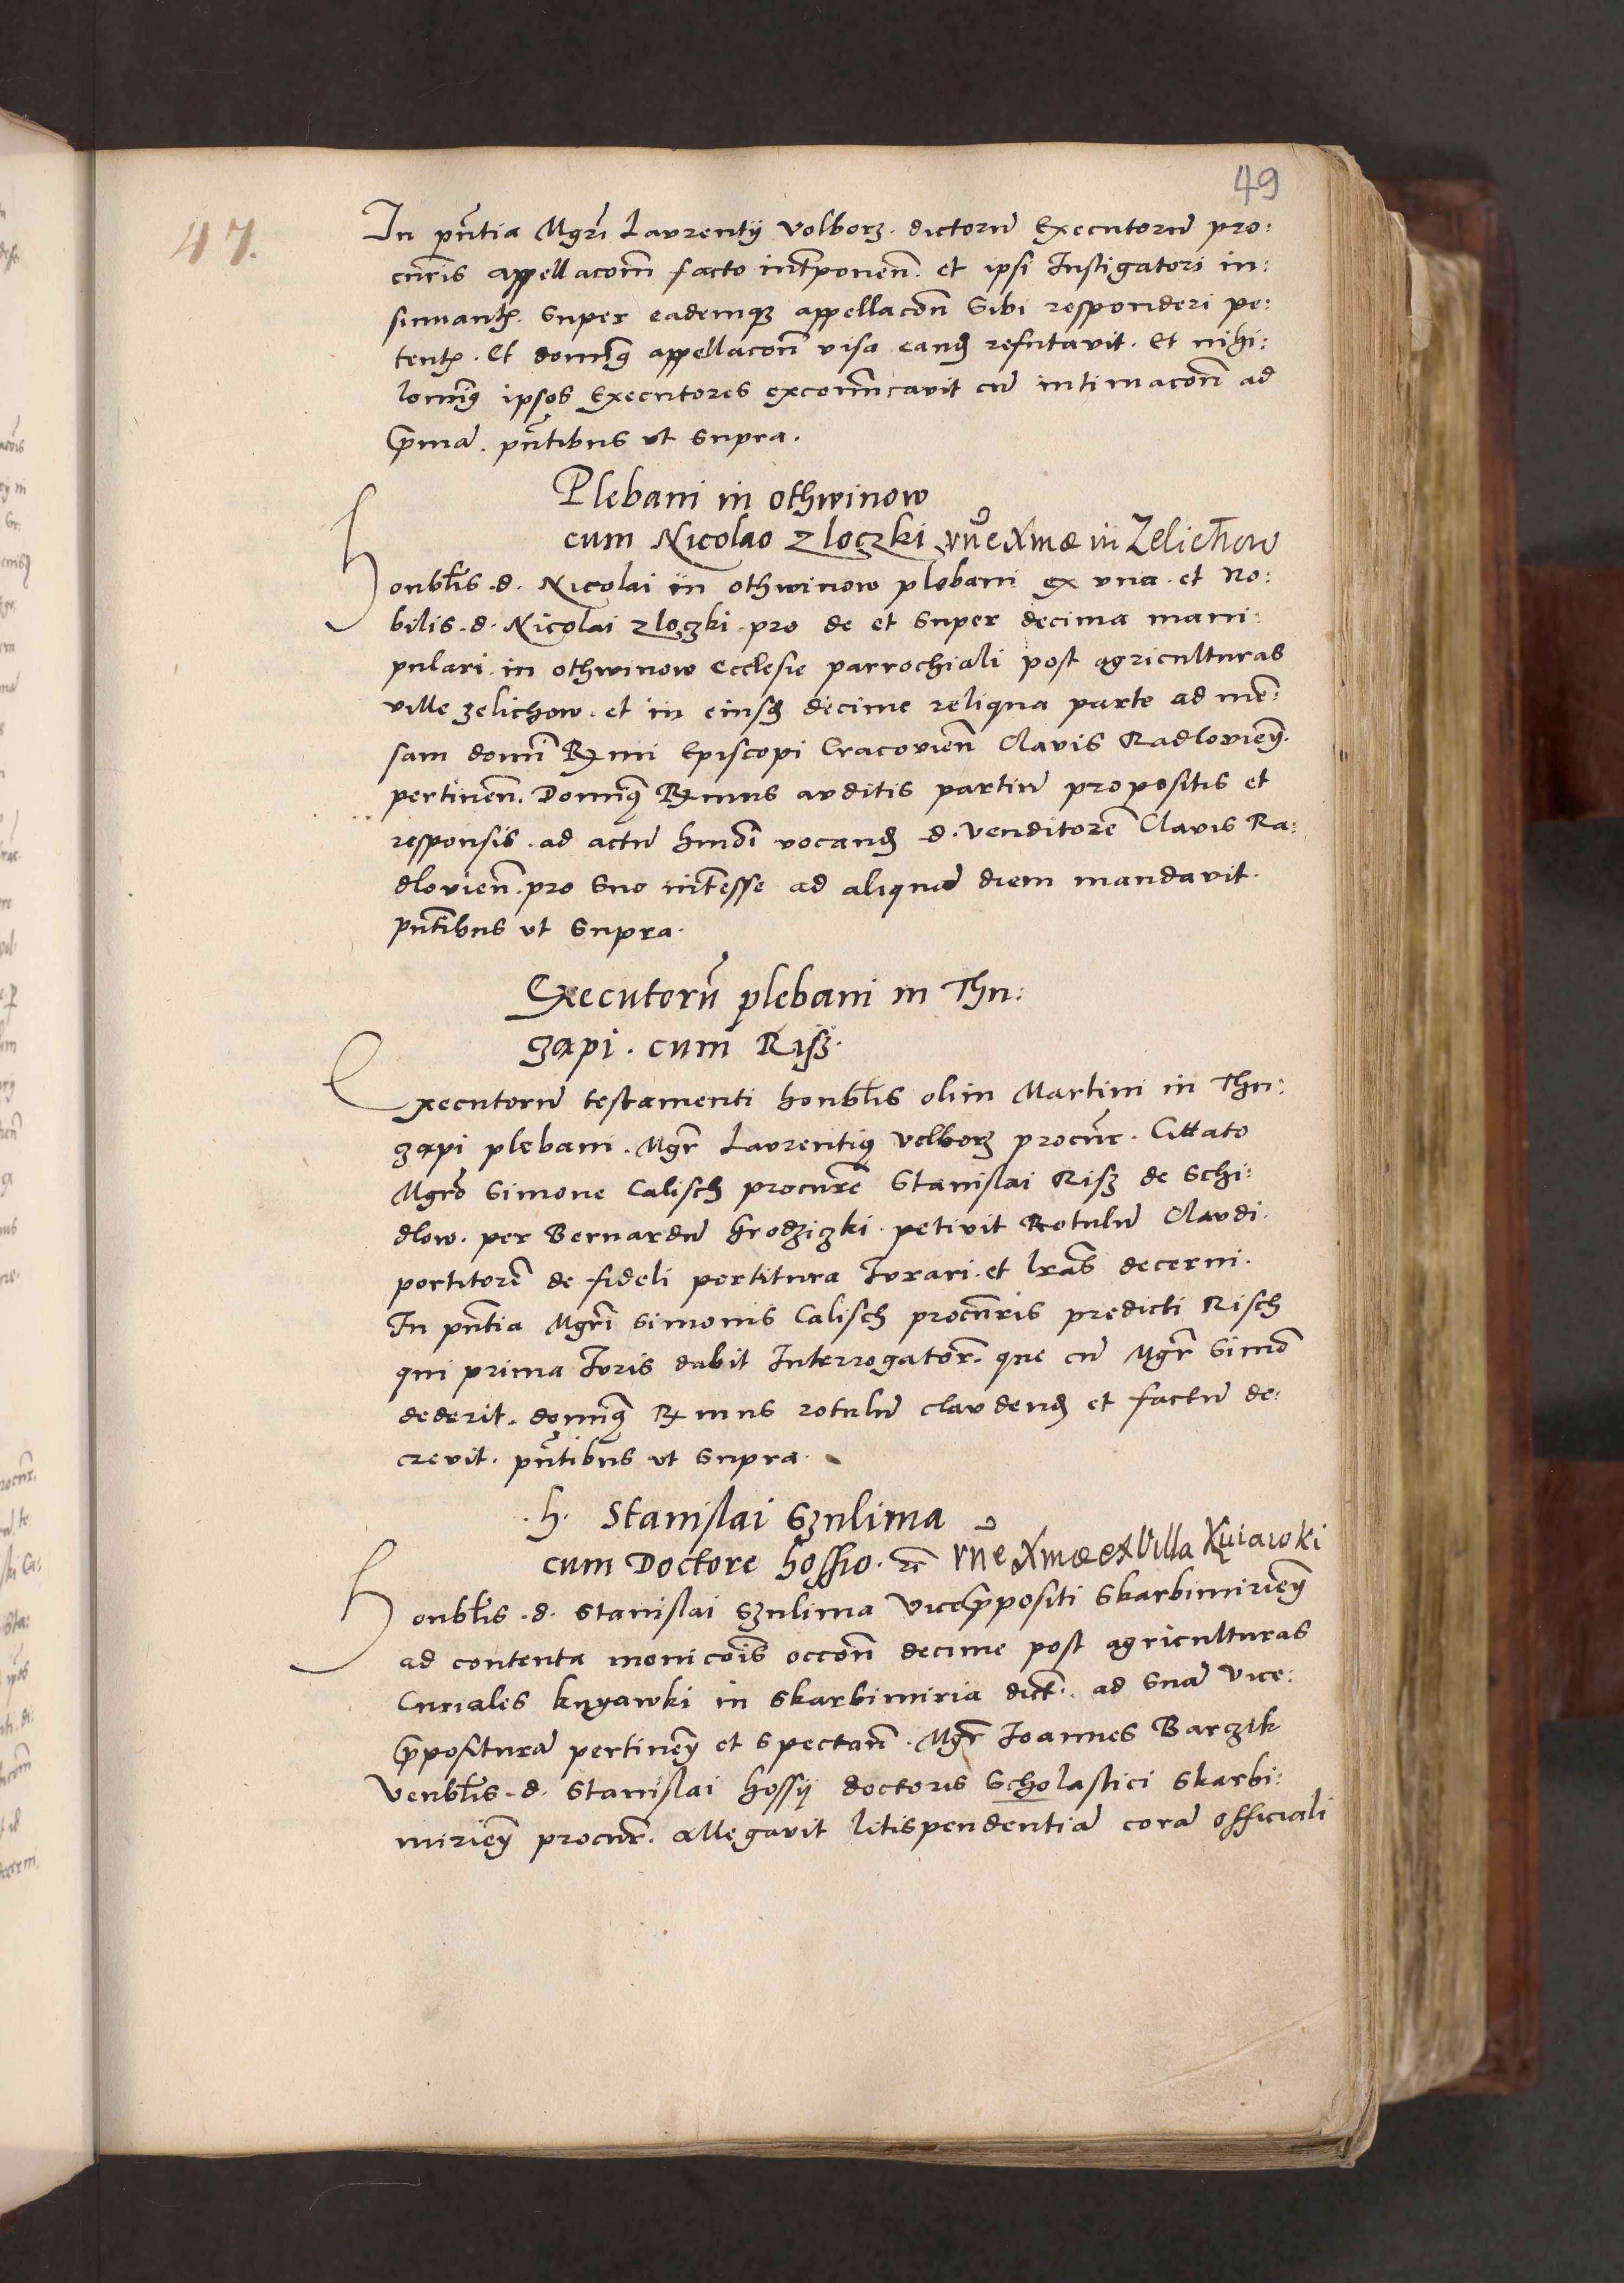 49
47.
In pñtia Mgri Laurentij Volborz. dictorũ Executorũ pro:
cũris appellacoẽm facto intꝑponeñ. et ipsi Instigatori in:
sinuantẽ. super eademqꝫ appellacoñ Sibi responderi pe:
tentẽ. Et dominꝯ appellacoñ visa eandẽ refutavit. Et nihi:
lominꝯ ipsos Executores excom̃cavit cũ intimacoñ ad
Primã. pñtibus ut supra.
Plebani in othwinow
cum Nicolao Zloczki rñe Xmæ in Zelichow
Honbĩlis. d. Nicolai in othwinow plebani ex una. et No:
bilis. d. Nicolai zloczki pro de et super decima mani:
pulari. in othwinow Ecclesie parrochiali post agriculturas
ville zelichow. et in eiusdẽ decime reliqua parte ad mẽ:
sam domĩ Rmi Episcopi Cracovieñ Clavis Radlovieñ.
pertineñ. Dominꝯ Rmus auditis partiũ propositis et
responsis. ad actũ hmõi vocandẽ d. Venditorẽ Clavis Ra:
dlovieñ. pro suo intẽsse ad aliquã diem mandavit.
pñtibus ut supra.
Executorũ plebani in Thu:
zapi. cum Risz.
Executorũ testamenti honbĩlis olim Martini in Thu:
zapi plebani. Mgr̃ Laurentiꝯ volborz procũr. Cittato
Mgrõ Simone Calisch procurẽ Stanislai Risz de Schi:
dlow. per Bernardũ hrodziczki. petivit Rotulũ Claudi.
portitorẽ de fideli portitura Iurari. et lrãs decerni.
In pñtia Mgri Simonis Calisch procũris predicti Risch
qui prima Iuris dabit Interrogator̃. que cũ Mgr̃ Simõ
dederit. dominꝯ Rmus rotulũ claudendẽ et factũ de:
crevit. pñtibus ut supra.
.h. Stanislai Sznlima
cum Doctore hossio. rẽ rñe Xmæ ex Villa Kuiawki
Honbĩlis. d. Stanislai Sznlima Vicep̃positi Skarbimirieñ
ad contenta monicõis occoñ decime post agriculturas
Curiales kuyawki in Skarbimiria dict̃. ad suã vice:
p̃positurã pertineñ et spectañ. Mgr̃ Ioannes Barczik
Venbĩlis. d. Stanislai hossij doctoris Scholastici Skarbi:
mirieñ procur̃. allegavit litispendentiã corã officiali